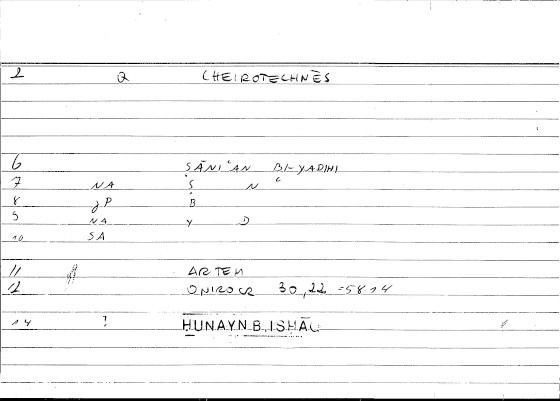 2 Q CHEIROTECHNĒS
6 ṢĀNIʿAN BI-YADIHI
7 NA Ṣ N ʿ
8 gP B
9 NA Y D
10 SA
11 ARTEM
12 ONIROCR 30,22 = 58 14
14 ! HUNAYN B. ISHĀQ